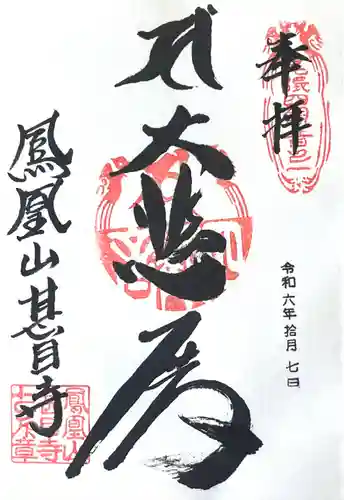 奉拝
令和六年拾月七日
大悲殿
鳳凰山甚目寺
鳳凰山
甚目寺